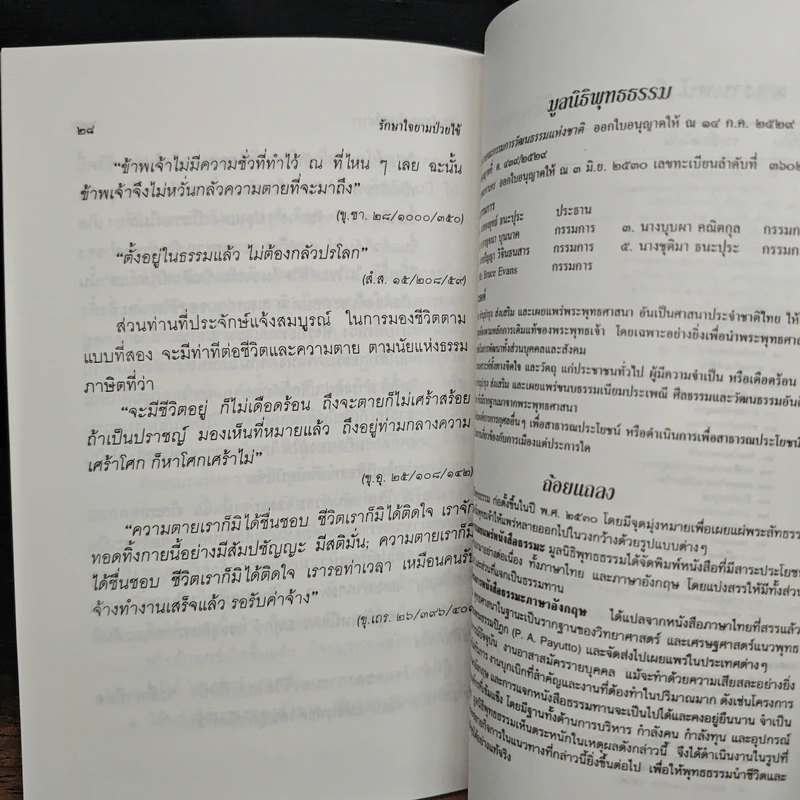 ๒๘
รักษาใจยามป่วยไข้
“ข้าพเจ้าไม่มีความชั่วที่ทำไว้ ณ ที่ไหน ๆ เลย ฉะนั้น
ข้าพเจ้าจึงไม่หวั่นกลัวความตายที่จะมาถึง”
(ขุ.ชา. ๒๘/๑๐๐๐/๓๕๐)
“ตั้งอยู่ในธรรมแล้ว ไม่ต้องกลัวปรโลก”
(สํ.ส. ๑๕/๒๐๘/๕๙)
ส่วนท่านที่ประจักษ์แจ้งสมบูรณ์ ในการมองชีวิตตาม
แบบที่สอง จะมีท่าทีต่อชีวิตและความตาย ตามนัยแห่งธรรม
ภาษิตที่ว่า
“จะมีชีวิตอยู่ ก็ไม่เดือดร้อน ถึงจะตายก็ไม่เศร้าสร้อย
ถ้าเป็นปราชญ์ มองเห็นที่หมายแล้ว ถึงอยู่ท่ามกลางความ
เศร้าโศก ก็หาโศกเศร้าไม่”
(ขุ.อุ. ๒๕/๑๐๘/๑๔๒)
“ความตายเราก็มิได้ชื่นชอบ ชีวิตเราก็มิได้ติดใจ เราจัก
ทอดทิ้งกายนี้อย่างมีสัมปชัญญะ มีสติมั่น; ความตายเราก็มิ
ได้ชื่นชอบ ชีวิตเราก็มิได้ติดใจ เรารอท่าเวลา เหมือนคนรับ
จ้างทำงานเสร็จแล้ว รอรับค่าจ้าง”
(ขุ.เถร. ๒๖/๓๙๖/๔๐๑
มูลนิธิพุทธธรรม
กรรมการวัฒนธรรมแห่งชาติ ออกใบอนุญาตให้ ณ ๑๔ ก.ค. ๒๕๒๙
ออกใบอนุญาตให้ ณ ๓ มิ.ย. ๒๕๓๐ เลขทะเบียนลำดับที่ ๓๖๐๒
ธนะปุระ ประธาน
บุนนาค กรรมการ ๓. นางบุบผา คณิตกุล กรรมก
วิจินธนสาร กรรมการ ๕. นางชุติมา ธนะปุระ กรรมก
Bruce Evans กรรมการ
ส่งเสริม และเผยแพร่พระพุทธศาสนา อันเป็นศาสนาประจำชาติไทย ให้
ตามหลักการเดิมแท้ของพระพุทธเจ้า โดยเฉพาะอย่างยิ่งเพื่อนำพระพุทธศา
พัฒนาทั้งส่วนบุคคลและสังคม
ทั้งทางจิตใจ และวัตถุ แก่ประชาชนทั่วไป ผู้มีความจำเป็น หรือเดือดร้อน
ส่งเสริม และเผยแพร่ขนบธรรมเนียมประเพณี ศีลธรรมและวัฒนธรรมอันดี
รากฐานมาจากพระพุทธศาสนา
การกุศลอื่นๆ เพื่อสาธารณประโยชน์ หรือดำเนินการเพื่อสาธารณประโยชน์
เกี่ยวข้องกับการเมืองแต่ประการใด
ถ้อยแถลง
ก่อตั้งขึ้นในปี พ.ศ. ๒๕๓๐ โดยมีจุดมุ่งหมายเพื่อเผยแผ่พระสัทธรร
ให้แพร่หลายออกไปในวงกว้างด้วยรูปแบบต่างๆ
หนังสือธรรมะ มูลนิธิพุทธธรรมได้จัดพิมพ์หนังสือที่มีสาระประโยช
อย่างต่อเนื่อง ทั้งภาษาไทย และภาษาอังกฤษ โดยแบ่งสรรให้มีทั้งส่วน
และส่วนที่แจกเป็นธรรมทาน
หนังสือธรรมะภาษาอังกฤษ ได้แปลจากหนังสือภาษาไทยที่สรรแล้ว
ในฐานะเป็นรากฐานของวิทยาศาสตร์ และเศรษฐศาสตร์แนวพุทธ
(P. A. Payutto) และจัดส่งไปเผยแพร่ในประเทศต่างๆ
งานอาสาสมัครรายบุคคล แม้จะทำด้วยความเสียสละอย่างยิ่ง
งานบุกเบิกที่สำคัญและงานที่ต้องทำในปริมาณมาก ดังเช่นโครงการ
และการแจกหนังสือธรรมทานจะเป็นไปได้และคงอยู่ยืนนาน จำเป็น
โดยมีฐานทั้งด้านการบริหาร กำลังคน กำลังทุน และอุปกรณ์
มูลนิธิพุทธธรรมเห็นตระหนักในเหตุผลดังกล่าวนี้ จึงได้ดำเนินงานในรูปที่
กิจการในแนวทางที่กล่าวนี้ยิ่งขึ้นต่อไป เพื่อให้พุทธธรรมนำชีวิตและ